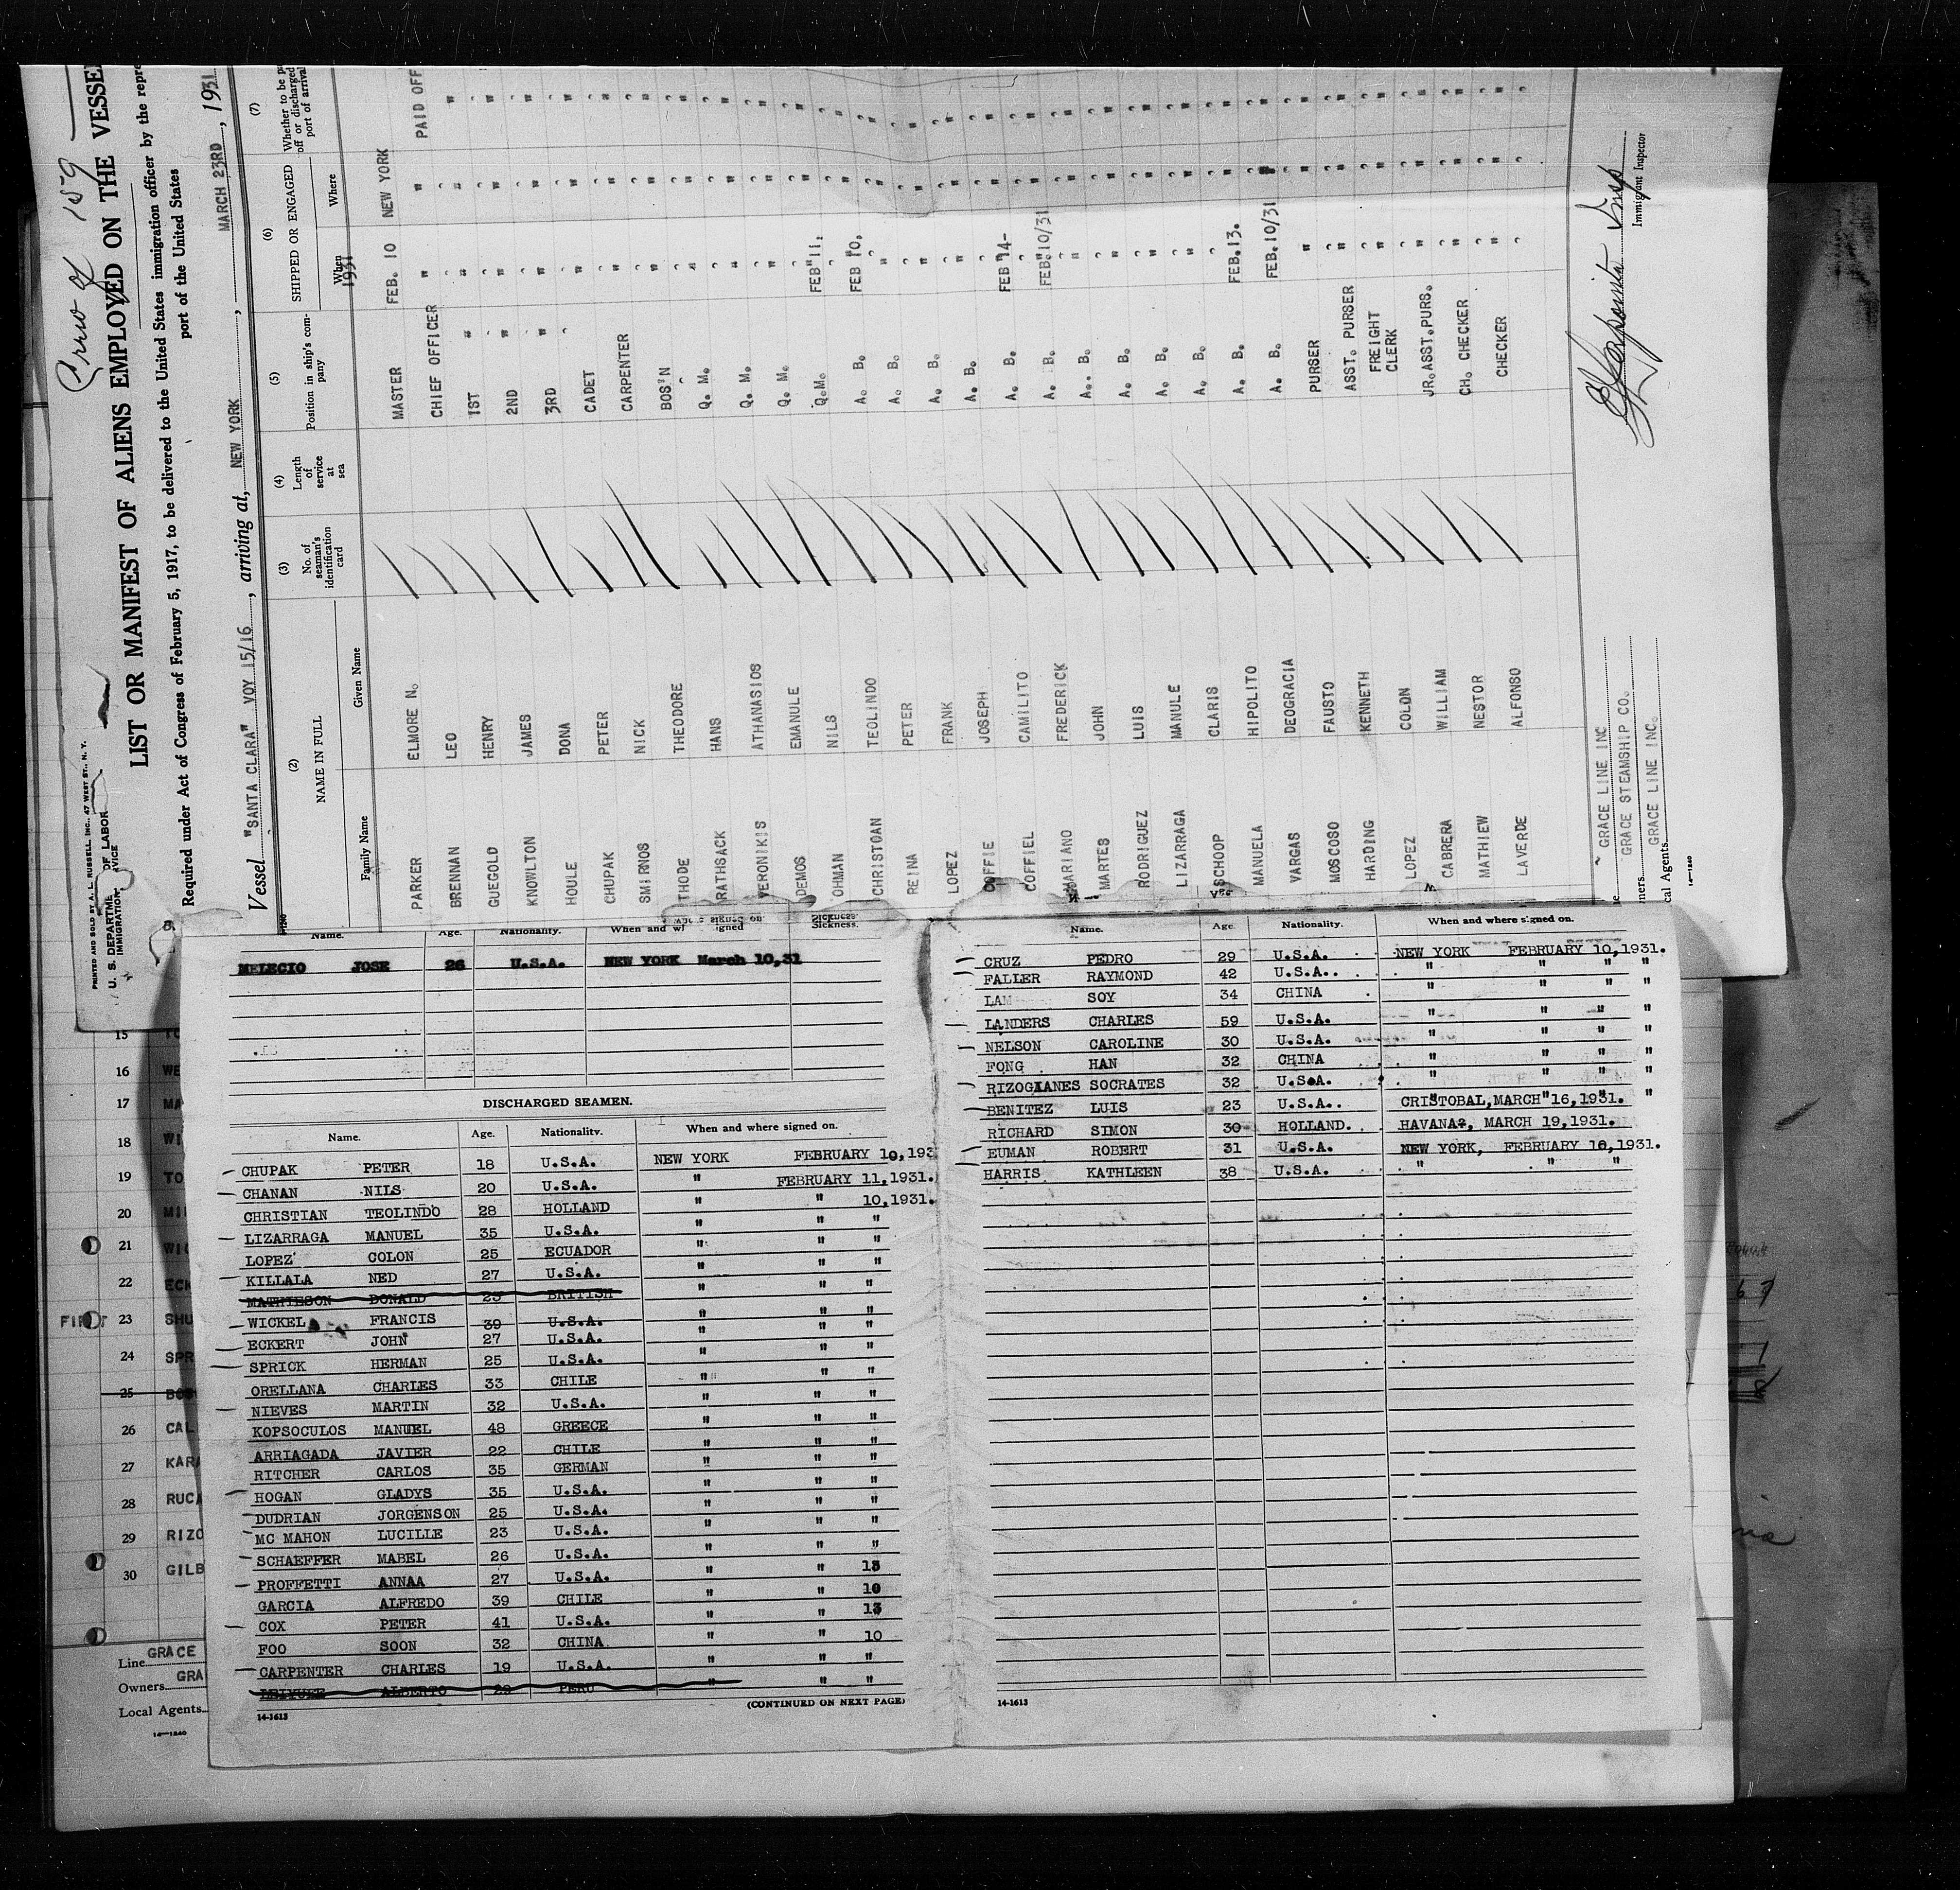 Crew of 159
PRINTED AND SOLD BY A. L. RUSSELL, INC., 47 WEST ST., N. Y.
U. S. DEPARTME OF LABOR
IMMIGRATION VICE
LIST OR MANIFEST OF ALIENS EMPLOYED ON THE VESSE
Required under Act of Congress of February 5, 1917, to be delivered to the United States immigration officer by the repre
port of the United States
Vessel "SANTA CLARA" VOY 15/16, arriving at, NEW YORK, MARCH 23RD, 1931
(2) (3) (4) (5) (6) (7)
NAME IN FULL No. of seaman's identification card Length of service at sea Position in ship's com- pany SHIPPED OR ENGAGED Whether to be p off or discharged port of arrival
Family Name Given Name When Where
1931
MASTER FEB. 10 NEW YORK
PARKER ELMORE N. CHIEF OFFICER " " PAID OFF
BRENNAN LEO 1ST " " " "
GUEGOLD HENRY 2ND " " " "
KNOWLTON JAMES 3RD " " " "
HOULE DONA CADET " " "
CHUPAK PETER CARPENTER " " "
SMIRNOS NICK BOS'N " " "
THODE THEODORE Q. M. " " "
RATHSACK HANS Q. M. " " "
VERONIKIS ATHANASIOS Q. M. " " "
DEMOS EMANULE Q.M. FEB 11. " "
OHMAN NILS A. B. FEB 10. " "
CHRISTOAN TEOLINDO A. B. " " "
REINA PETER A. B. " " "
LOPEZ FRANK A. B. " " "
COFFIE JOSEPH A. B. FEB 14- " "
COFFIEL CAMILITO A. B. FEB. 10/31 " "
MARIANO FREDERICK A. B. " " "
MARTES JOHN A. B. " " "
RODRIGUEZ LUIS A. B. " " "
LIZARRAGA MANULE A. B. " " "
SCHOOP CLARIS A. B. FEB. 13. " "
MANUELA HIPOLITO A. B. FEB. 10/31 " "
VARGAS DEOGRACIA PURSER " " "
MOSCOSO FAUSTO ASST. PURSER " " "
HARDING KENNETH FREIGHT CLERK " " "
LOPEZ COLON JR. ASST. PURS. " " "
CABRERA WILLIAM CH. CHECKER " " "
MATHIEW NESTOR CHECKER " " "
LAVERDE ALFONSO " " "
GRACE LINE INC
ners GRACE STEAMSHIP CO.
cal Agents GRACE LINE INC.
14—1240
Immigrant Inspector
Name. Age. Nationality. When and wh igned Sickness.
MELECIO JOSE 26 U.S.A. NEW YORK March 10,31
DISCHARGED SEAMEN.
Name. Age. Nationality. When and where signed on.
CHUPAK PETER 18 U.S.A. NEW YORK FEBRUARY 10,193
CHANAN NILS 20 U.S.A. " FEBRUARY 11,1931.
CHRISTIAN TEOLINDO 28 HOLLAND " " 10,1931.
LIZARRAGA MANUEL 35 U.S.A. " " "
LOPEZ COLON 25 ECUADOR " " "
KILLALA NED 27 U.S.A. " " "
MATHIESON DONALD 23 BRITISH " " "
WICKEL FRANCIS 39 U.S.A. " " "
ECKERT JOHN 27 U.S.A. " " "
SPRICK HERMAN 25 U.S.A. " " "
ORELLANA CHARLES 33 CHILE " " "
NIEVES MARTIN 32 U.S.A. " " "
KOPSOCULOS MANUEL 48 GREECE " " "
ARRIAGADA JAVIER 22 CHILE " " "
RITCHER CARLOS 35 GERMAN " " "
HOGAN GLADYS 35 U.S.A. " " "
DUDRIAN JORGENSON 25 U.S.A. " " "
MC MAHON LUCILLE 23 U.S.A. " " "
SCHAEFFER MABEL 26 U.S.A. " " "
PROFFETTI ANNAA 27 U.S.A. " " 13
GARCIA ALFREDO 39 CHILE " " 10
COX PETER 41 U.S.A. " " 13
FOO SOON 32 CHINA " " 10
CARPENTER CHARLES 19 U.S.A. " " "
ALBERTO 29 PERU " " "
(CONTINUED ON NEXT PAGE)
14-1613
Name. Age. Nationality. When and where signed on.
CRUZ PEDRO 29 U.S.A. NEW YORK FEBRUARY 10,1931.
FALLER RAYMOND 42 U.S.A. " " " "
LAM SOY 34 CHINA " " " "
LANDERS CHARLES 59 U.S.A. " " " "
NELSON CAROLINE 30 U.S.A. " " " "
FONG HAN 32 CHINA " " " "
RIZOGIANES SOCRATES 32 U.S.A. " " " "
BENITEZ LUIS 23 U.S.A. CRISTOBAL, MARCH 16,1931.
RICHARD SIMON 30 HOLLAND. HAVANA, MARCH 19,1931.
EUMAN ROBERT 31 U.S.A. NEW YORK, FEBRUARY 10,1931.
HARRIS KATHLEEN 38 U.S.A. " " "
14-1613
15
16 WE
17 MA
18 WI
19 TO
20 MI
21 WI
22 ECK
FIRST 23 SHU
24 SPR
25 BO
26 CAL
27 KARA
28 RUCA
29 RIZO
30 GILB
Line GRACE
Owners GRA
Local Agents
14—1240